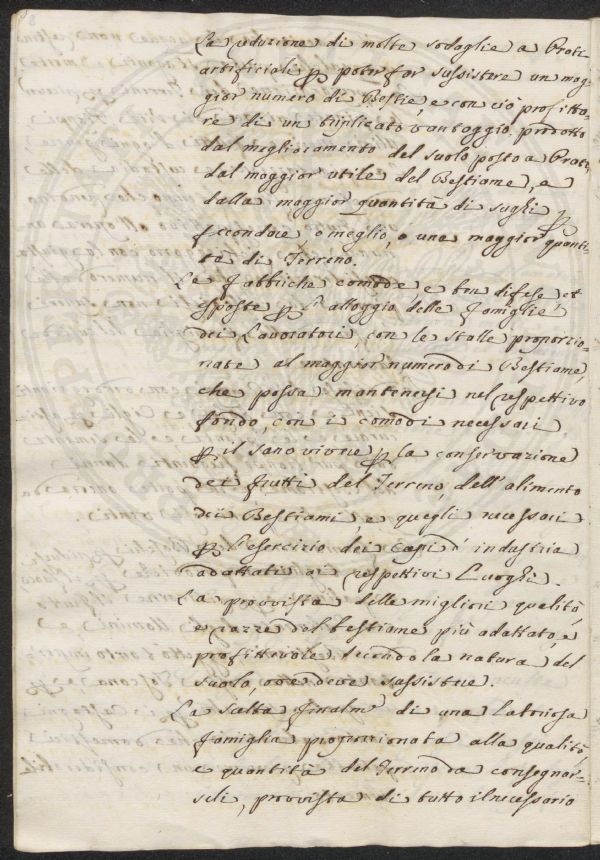 La riduzione di molte sodaglie a Prati
artificiali p poter far sussistere un mag=
gior numero di Bestie, e con ciò profitta=
re di un triplicato vantaggio, prodotto
dal miglioramento del suolo posto a Prati,
dal maggior utile del Bestiame, e
dalla maggior quantità di sughi p
fecondare o meglio, o una maggior quanti=
tà di Terreno.
Le Fabbriche comode e ben difese, et
esposte p l'alloggio delle Famiglie
dei Lavoratori, con le Stalle proporzio=
nate al maggior numero di Bestiame,
che possa mantenersi nel respettivo
fondo, con i comodi necessari
p il sano vivere, p la conservazione
dei frutti del Terreno, dell'alimento
dei Bestiami, e quegli necessari
p l'esercizio dei Capi d'industria
adattati ai respettivi Luoghi.
La provvista delle migliori qualità,
e razze del bestiame più adattato, e
profittevole secondo la natura del
suolo, ove deve sussistere.
La scelta finalm di una Laboriosa
famiglia proporzionata alla qualità,
e quantità del Terreno da consegnar=
seli, provvista di tutto il necessario